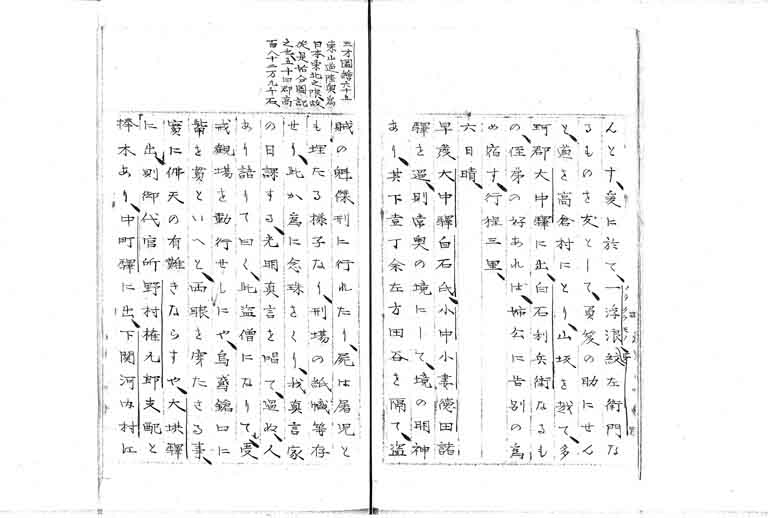 んとす、爰に於て、一浮浪紋左衛門な
ノラクラモノ
るものを友として、負笈の助にせん
と、道を高倉村にとり、山坂を越て多
珂郡大中驛に出、白石利兵衛なるも
の、侄弟の好あれは、姉公に告別の為
め宿す、行程三里、
六日晴、
早發大中驛白石氏、小中小妻徳田諸
驛を過、則常奥の境にして、境の明神
あり、其下壹丁余左方田谷を隔て、盗
三才圖繪六十五
東山道陸奥爲
日本東北之隈故
從是始分圖記
之也五十四郡高
百八十二万九千石
賊の魁傑刑に行れたり、屍は屠児と
も埋たる様子なり、刑場の紙幟等存
せり、此か為に念珠をくり、我真言家
の日課する、光明真言を唱て過ぬ、人
あり詰りて曰く、此盗僧になりて、受
戒觀場を勤行せしにや、烏 口に
觜を といへと、両眼を穿たさる事、
實に佛天の有難きならすや、大 驛
に出、則御代官所野村権九郎支配と
榜木あり、中町驛に出、下関河内村江